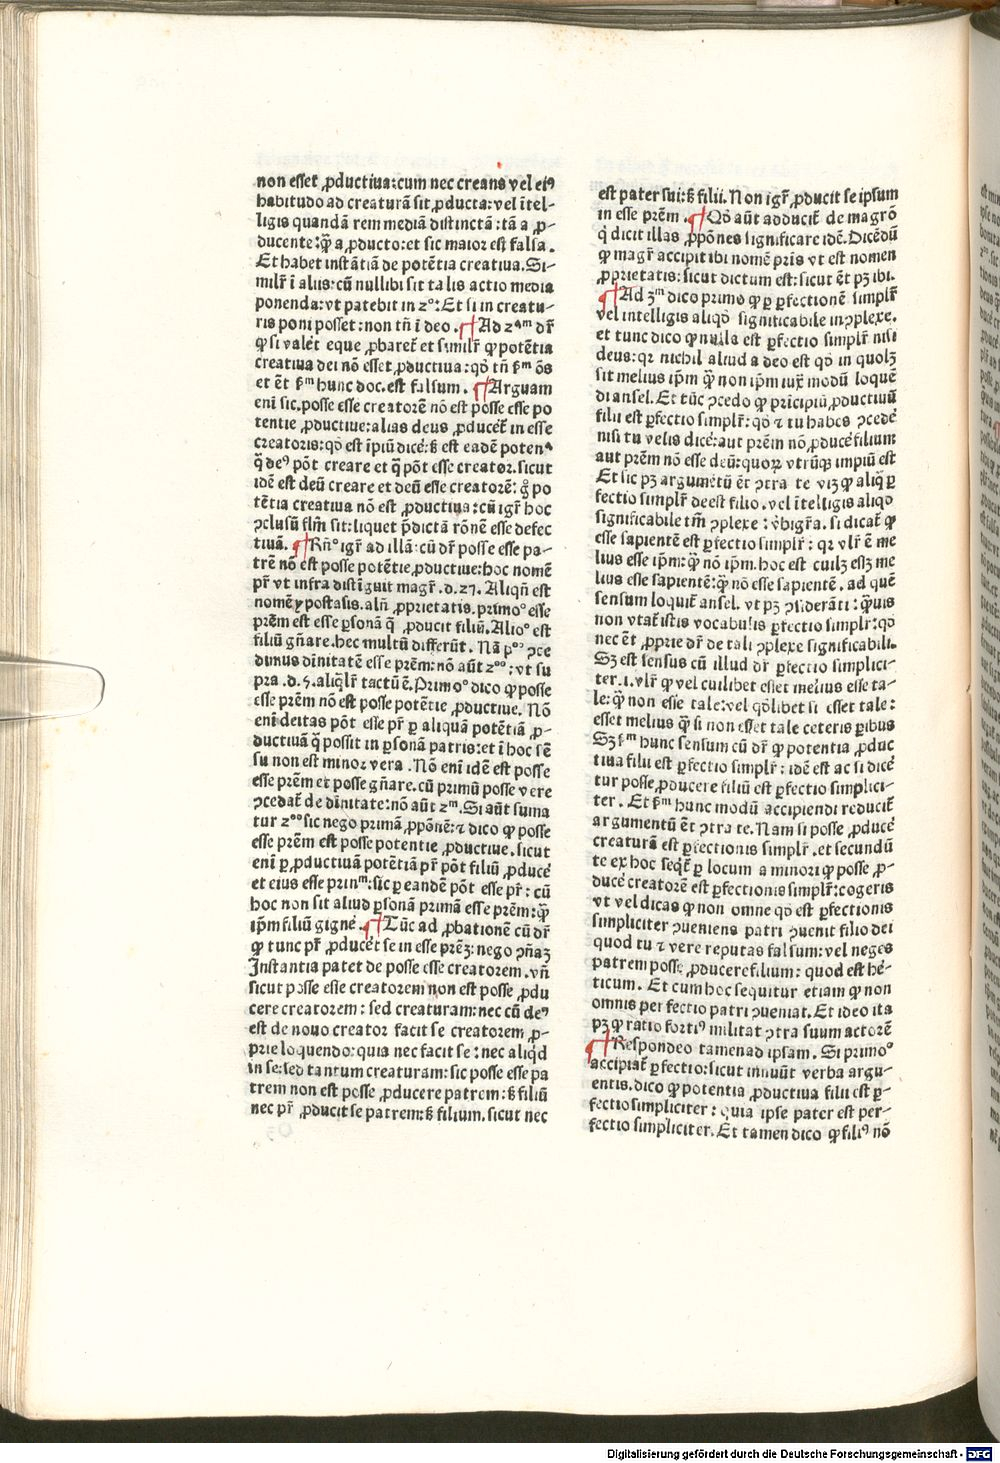 non esset ꝓductiua:cum nec creans vel eiꝰ
habitudo ad creaturā sit ꝓducta:vel ītel-
ligis quandā rem mediā distinctā:tā a ꝓ-
ducente:ꝙ̄ a ꝓducto:et sic maior est falsa.
Et habet instātiā de potētia creatiua. Si-
milr̄ ī aliis:cū nullibi sit talis actio media
ponenda:vt patebit in 2°:Et si in creatu-
ris poni posset:non tn̄ ī deo. ¶ Ad 2ᵃᵐ dr̄
ꝙ si valet eque ꝓbaret̄ et similr̄ ꝙ potētia
creatiua dei nō esset ꝓductiua:qd̄ tn̄ ẜm ōs
et ēt ẜm hunc doc. est falsum. ¶ Arguam
eni sic. posse esse creatorē nō est posse esse po
tentie ꝓductiue:alias deus ꝓducet̄ in esse
creatoris:qd̄ est īpiū dicē:ẜ est eadē potenᵃ
q̄ deꝰ pōt creare et q̄ pōt esse creator. sicut
idē est deū creare et deū esse creatorē:g̊ po
tētia creatiua nō est ꝓductiua:cū igr̄ hoc
ꝯclusū flm̄ sit:liquet p̄dictā rōnē esse defec
tiuā. ¶ Rn̄° igr̄ ad illā:cū dr̄ posse esse pa-
trē nō est posse potētie ꝓductiue:hoc nomē
pr̄ vt infra distīguit magr̄. d. 27. Aliqn̄ est
nomē ypostasis. aln̄ ꝓprietatis. primo° esse
prēm est esse ꝑsonā q̄ ꝓducit filiū. Alio° est
filiū gn̄are. hec multū differūt. Nā p°° ꝯce
dimus dīnitatē esse prēm:nō aūt 2°°:vt su
pra. d. 5. aliqlr̄ tactū ē. Primo° dico ꝙ posse
esse prēm nō est posse potētie ꝓductiue. Nō
eni deitas pōt esse pr̄ ꝑ aliquā potētiā ꝓ-
ductiuā q̄ possit in ꝑsonā patris:et ī hoc sē
su non est minor vera. Nō eni idē est posse
esse prēm et posse gn̄are. cū primū posse vere
ꝯcedat̄ de dīnitate:nō aūt 2ᵐ. Si aūt suma
tur 2°° sic nego primā ꝓpōnē:⁊ dico ꝙ posse
esse prēm est posse potentie ꝓductiue. sicut
eni ꝑ ꝓductiuā potētiā pr̄ pōt filiū ꝓducē
et eius esse prinᵐ:sic ꝑ eandē pōt esse pr̄:cū
hoc non sit aliud ꝑsonā primā esse prēm:ꝙ̄
ip̄m filiū gignē. ¶ Tūc ad ꝓbationē cū dr̄
ꝙ tunc pr̄ ꝓducet se in esse prēꝫ:nego ꝯn̄aꝫ
Instantia patet de posse esse creatorem. vn̄
sicut posse esse creatorem non est posse ꝓdu
cere creatorem:sed creaturam:nec cū deꝰ
est de nouo creator facit se creatorem ꝓ-
prie loquendo:quia nec facit se:nec aliqd
in se:sed tantum creaturam:sic posse esse pa
trem non est posse ꝓducere patrem:ẜ filiū
nec pr̄ ꝓducit se patrem:ẜ filium. sicut nec
est pater sui:ẜ filii. Non igr̄ ꝓducit se ipsum
in esse prēm. ¶ Qd̄ aūt adducit̄ de magrō
q̇ dicit illas ꝓpōnes significare idē. Dicēdū
ꝙ magr̄ accipit ibi nomē pr̄is vt est nomen
ꝓprietatis:sicut dictum est:sicut ēt pꝫ ibi.
¶ Ad 3ᵐ dico primo ꝙ ꝑ ꝑfectionē simplr̄
vel intelligis aliqd̄ significabile inꝯplexe.
et tunc dico ꝙ nulla est ꝑfectio simplr̄ nisi
deus:qr nichil aliud a deo est qd̄ in quolꝫ
sit melius ip̄m ꝙ̄ non ip̄m iuxͣ modū loquē
di ansel. Et tūc ꝯcedo ꝙ prīcipiū ꝓductiuū
filii est ꝑfectio simplr̄:qd̄ ⁊ tu habes ꝯcedē
nisi tu velis dicē:aut prēm nō ꝓducē filium:
aut prēm nō esse deū:quoꝝ vtrūqꝫ impiū est
Et sic pꝫ argumētū ēt ꝯtra te viꝫ ꝙ aliq̄ ꝑ
fectio simplr̄ deest filio. vel ītelligis aliqd̄
significabile tm̄ ꝯplexe:v̄bigr̄a. si dicat̄ ꝙ
esse sapientē est ꝑfectio simplr̄:qr vlr̄ ē me
lius esse ip̄m:ꝙ̄ nō ip̄m. hoc est cuilꝫ essꝫ me
lius esse sapientē:ꝙ̄ nō esse sapientē. ad quē
sensum loquit̄ ansel. vt pꝫ ꝯsiderāti:q̄uis
non vtat̄ istis vocabulis ꝑfectio simplr̄:qd̄
nec ēt ꝓprie dr̄ de tali ꝯplexe significabili.
Sꝫ est sensus cū illud dr̄ ꝑfectio simplici-
ter. i. vlr̄ ꝙ vel cuilibet esset melius esse ta-
le:ꝙ̄ non esse tale:vel qd̄libet si esset tale:
esset melius ꝙ̄ si non esset tale ceteris ꝑibus
Sꝫ ẜm hunc sensum cū dr̄ ꝙ potentia ꝓduc
tiua filii est ꝑfectio simplr̄:idē est ac si dicē
tur posse ꝓducere filiū est ꝑfectio simplici-
ter. Et ẜm hunc modū accipiendi reducit̄
argumentū ēt ꝯtra te. Nam si posse ꝓducē
creaturā est ꝑfectionis simplr̄. et secundū
te ex hoc seqt̄ ꝑ locum a minori ꝙ posse ꝓ-
ducē creatorē est ꝑfectionis simplr̄:cogeris
vt vel dicas ꝙ non omne qd̄ est ꝑfectionis
simpliciter ꝯueniens patri ꝯuenit filio dei
quod tu ⁊ vere reputas falsum:vel neges
patrem posse ꝓducere filium:quod est hē-
ticum. Et cum hoc sequitur etiam ꝙ non
omnis perfectio patri ꝯueniat. Et ideo ita
pꝫ ꝙ ratio fortiꝰ militat ꝯtra suum actorē
¶ Respondeo tamen ad ipsam. Si primo°
accipiat̄ ꝑfectio:sicut innuūt verba argu-
entis. dico ꝙ potentia ꝓductiua filii est ꝑ-
fectio simpliciter:quia ipse pater est per-
fectio simpliciter. Et tamen dico ꝙ filiꝰ nō
Digitalisierung gefördert durch die Deutsche Forschungsgemeinschaft - DFG